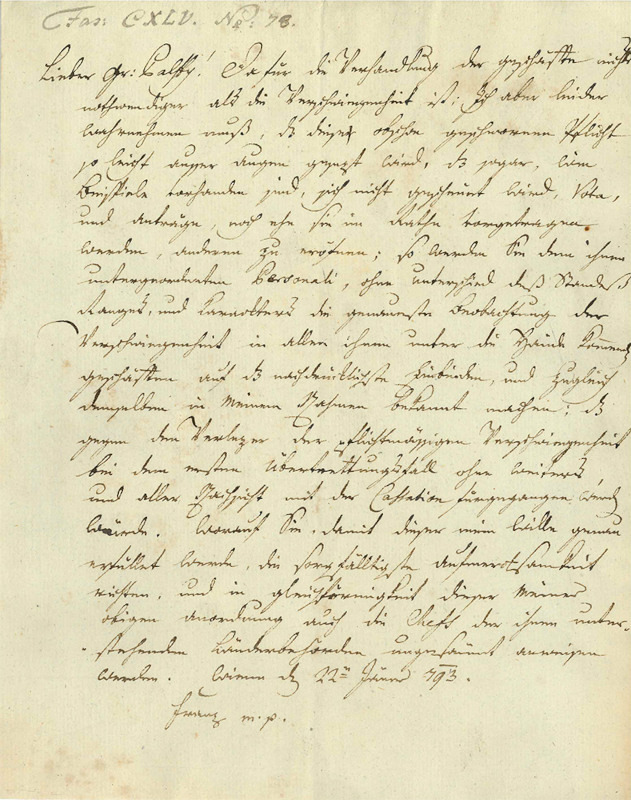 Fas: CXLV. No: 78.
Lieber Gr: Palfy! Da für die Verhandlung der geschäfte nichts
nothwendiger als die Verschwiegenheit ist; Ich aber leider
wahrnehmen muß, dß diese obschon geschworene Pflicht
so leicht ausser augen gesezt wird, dß sogar,
Beispiele vorhanden sind, sich nicht gescheuet wird, Vota,
und anträge, noch ehe sie im Rathe vorgetragen
werden, anderen zu eröfnen; so werden Sie dem ihnen
untergeordneten Personali, ohne unterschied deß Standes
Ranges, und Karackters die genaueste Beobachtung der
Verschwiegenheit in allen ihnen unter die Hände kommenden
geschäften auf dß nachdrücklichste einbinden, und zugleich
demselben in Meinem Nahmen bekannt machen; dß
gegen den Verlezer der pflichtmässigen Verschwiegenheit
bei dem ersten übertrettungsfall ohne weiters
und aller Nachsicht mit der Cassation fürgegangen werden
würde. worauf Sie, damit dieser mein wille genau
erfüllet werde, die sorgfälltigste aufmerksamkeit
richten, und in gleichförmigkeit dieser Meiner
obigen anordnung auch die Chefs der ihnen unter-
stehenden Länderbehörden ungesäumt anweisen
werden. Wienn dn 22ten Jäner 793.
Franz m. p.